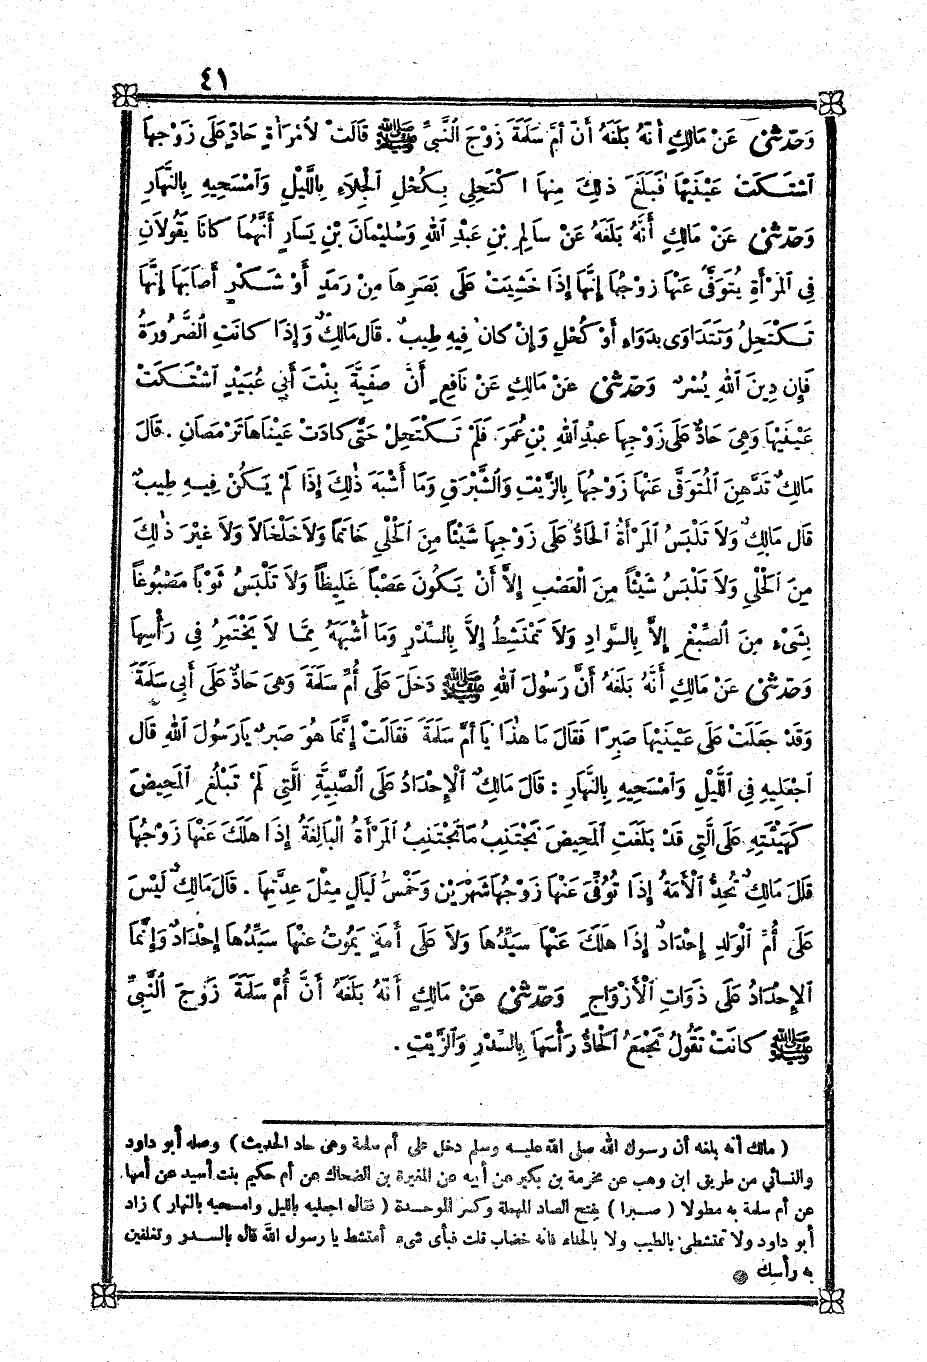 ٤١
وَحَدَّثَنِي عَنْ مَالِكٍ أَنَّهُ بَلَغَهُ أَنَّ أُمَّ سَلَمَةَ زَوْجَ النَّبِيِّ ﷺ قَالَتْ لِأَمْرَأَةٍ حَادٍّ عَلَى زَوْجِهَا
اشْتَكَتْ عَيْنَيْهَا فَبَلَغَ ذٰلِكَ مِنْهَا اكْتَحِلِي بِكُحْلِ الْجِلَاءِ بِاللَّيْلِ وَامْسَحِيهِ بِالنَّهَارِ
وَحَدَّثَنِي عَنْ مَالِكٍ أَنَّهُ بَلَغَهُ عَنْ سَالِمِ بْنِ عَبْدِ اللهِ وَسُلَيْمَانَ بْنِ يَسَارٍ أَنَّهُمَا كَانَا يَقُولَانِ
فِي الْمَرْأَةِ يُتَوَفَّى عَنْهَا زَوْجُهَا إِنَّهَا إِذَا خَشِيَتْ عَلَى بَصَرِهَا مِنْ رَمَدٍ أَوْ شَكْوٍ أَصَابَهَا إِنَّهَا
تَكْتَحِلُ وَتَتَدَاوَى بِدَوَاءٍ أَوْ كُحْلٍ وَإِنْ كَانَ فِيهِ طِيبٌ . قَالَ مَالِكٌ وَإِذَا كَانَتِ الضَّرُورَةُ
فَإِن دِينَ اللهِ يُسْرٌ وَحَدَّثَنِي عَنْ مَالِكٍ عَنْ نَافِعٍ أَنَّ صَفِيَّةَ بِنْتَ أَبِي عُبَيْدٍ اشْتَكَتْ
عَيْنَيْهَا وَهِيَ حَادٌّ عَلَى زَوْجِهَا عَبْدِ اللهِ بْنِ عُمَرَ فَلَمْ تَكْتَحِلْ حَتَّى كَادَتْ عَيْنَاهَا تَرْمَصَانِ . قَالَ
مَالِكٌ تَدَّهِنُ الْمُتَوَفَّى عَنْهَا زَوْجُهَا بِالزَّيْتِ وَالشَّبْرَقِ وَمَا أَشْبَهَ ذٰلِكَ إِذَا لَمْ يَكُنْ فِيهِ طِيبٌ
قَالَ مَالِكٌ وَلَا تَلْبَسُ الْمَرْأَةُ الْحَادُّ عَلَى زَوْجِهَا شَيْئًا مِنَ الْحَلْيِ خَاتَمًا وَلَا خَلْخَالًا وَلَا غَيْرَ ذٰلِكَ
مِنَ الْحَلْيِ وَلَا تَلْبَسُ شَيْئًا مِنَ الْعَصْبِ إِلَّا أَنْ يَكُونَ عَصْبًا غَلِيظًا وَلَا تَلْبَسُ ثَوْبًا مَصْبُوغًا
بِشَيْءٍ مِنَ الصِّبْغِ إِلَّا بِالسَّوَادِ وَلَا تَمْتَشِطُ إِلَّا بِالسِّدْرِ وَمَا أَشْبَهَهُ مِمَّا لَا يَخْتَمِرُ فِي رَأْسِهَا
وَحَدَّثَنِي عَنْ مَالِكٍ أَنَّهُ بَلَغَهُ أَنَّ رَسُولَ اللهِ ﷺ دَخَلَ عَلَى أُمِّ سَلَمَةَ وَهِيَ حَادٌّ عَلَى أَبِي سَلَمَةَ
وَقَدْ جَعَلَتْ عَلَى عَيْنَيْهَا صَبِرًا فَقَالَ مَا هٰذَا يَا أُمَّ سَلَمَةَ فَقَالَتْ إِنَّمَا هُوَ صَبِرٌ يَا رَسُولَ اللهِ قَالَ
اجْعَلِيهِ فِي اللَّيْلِ وَامْسَحِيهِ بِالنَّهَارِ : قَالَ مَالِكٌ الْإِحْدَادُ عَلَى الصَّبِيَّةِ الَّتِي لَمْ تَبْلُغِ الْمَحِيضَ
كَهَيْئَتِهِ عَلَى الَّتِي قَدْ بَلَغَتِ الْمَحِيضَ تَجْتَنِبُ مَا تَجْتَنِبُ الْمَرْأَةُ الْبَالِغَةُ إِذَا هَلَكَ عَنْهَا زَوْجُهَا
قَالَ مَالِكٌ تُحِدُّ الْأَمَةُ إِذَا تُوُفِّيَ عَنْهَا زَوْجُهَا شَهْرَيْنِ وَخَمْسَ لَيَالٍ مِثْلَ عِدَّتِهَا . قَالَ مَالِكٌ لَيْسَ
عَلَى أُمِّ الْوَلَدِ إِحْدَادٌ إِذَا هَلَكَ عَنْهَا سَيِّدُهَا وَلَا عَلَى أَمَةٍ يَمُوتُ عَنْهَا سَيِّدُهَا إِحْدَادٌ وَإِنَّمَا
الْإِحْدَادُ عَلَى ذَوَاتِ الْأَزْوَاجِ وَحَدَّثَنِي عَنْ مَالِكٍ أَنَّهُ بَلَغَهُ أَنَّ أُمَّ سَلَمَةَ زَوْجَ النَّبِيِّ
ﷺ كَانَتْ تَقُولُ تَجْمَعُ الْحَادُّ رَأْسَهَا بِالسِّدْرِ وَالزَّيْتِ .
( مالك أنه بلغه أن رسول الله صلى الله عليه وسلم دخل على أم سلمة وهى حاد الحديث ) وصله أبو داود
والنسائي من طريق ابن وهب عن مخرمة بن بكير عن أبيه عن المغيرة بن الضحاك عن أم حكيم بنت أسيد عن أمها
عن أم سلمة به مطولا ( صبرا ) بفتح الصاد المهملة وكسر الموحدة ( فقال اجعليه بالليل وامسحيه بالنهار ) زاد
أبو داود ولا تمتشطى بالطيب ولا بالحناء فانه خضاب قلت فبأى شىء أمتشط يا رسول الله قال بالسدر وتغلفين
به رأسك